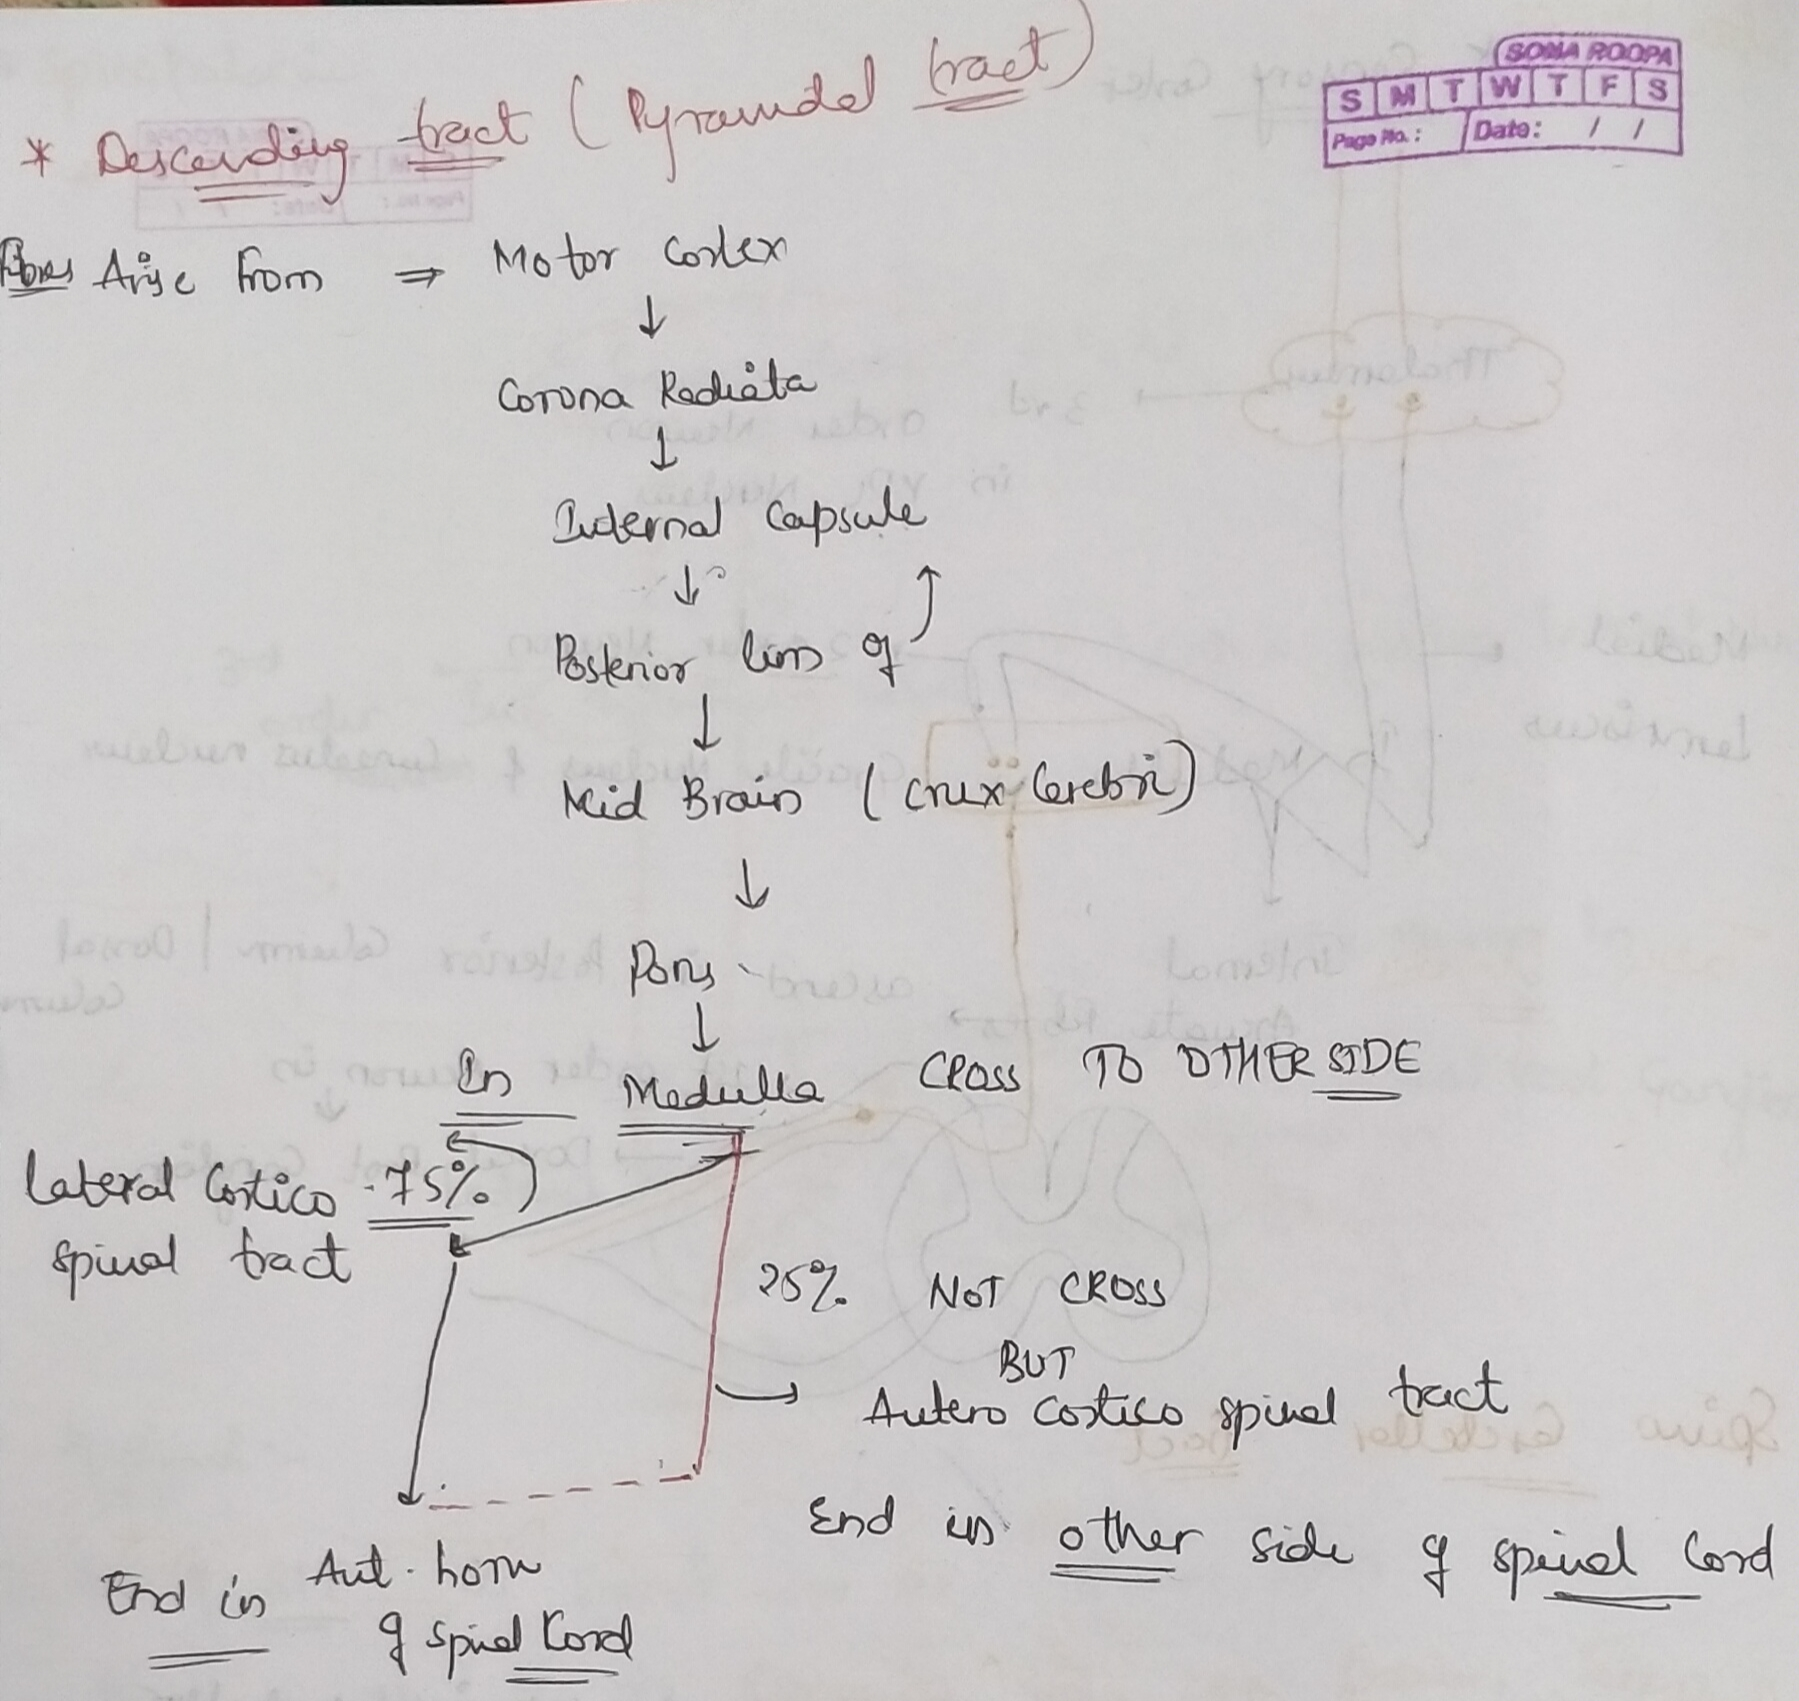 SOMA ROOPA
S M T W T F S
Page No.: Date: / /
* Descending tract (Pyramidal tract)
Fibres Arise from ⇒ Motor Cortex
↓
Corona Radiata
↓
Internal Capsule
↓
Posterior limb of
↓
Mid Brain (Crux Cerebri)
↓
Pons
↓
In Medulla CROSS TO OTHER SIDE
Lateral Cortico 75%
spinal tract
25% NOT CROSS
BUT
→ Antero Cortico spinal tract
End in other side of spinal Cord
End in Ant. horn
of spinal Cord